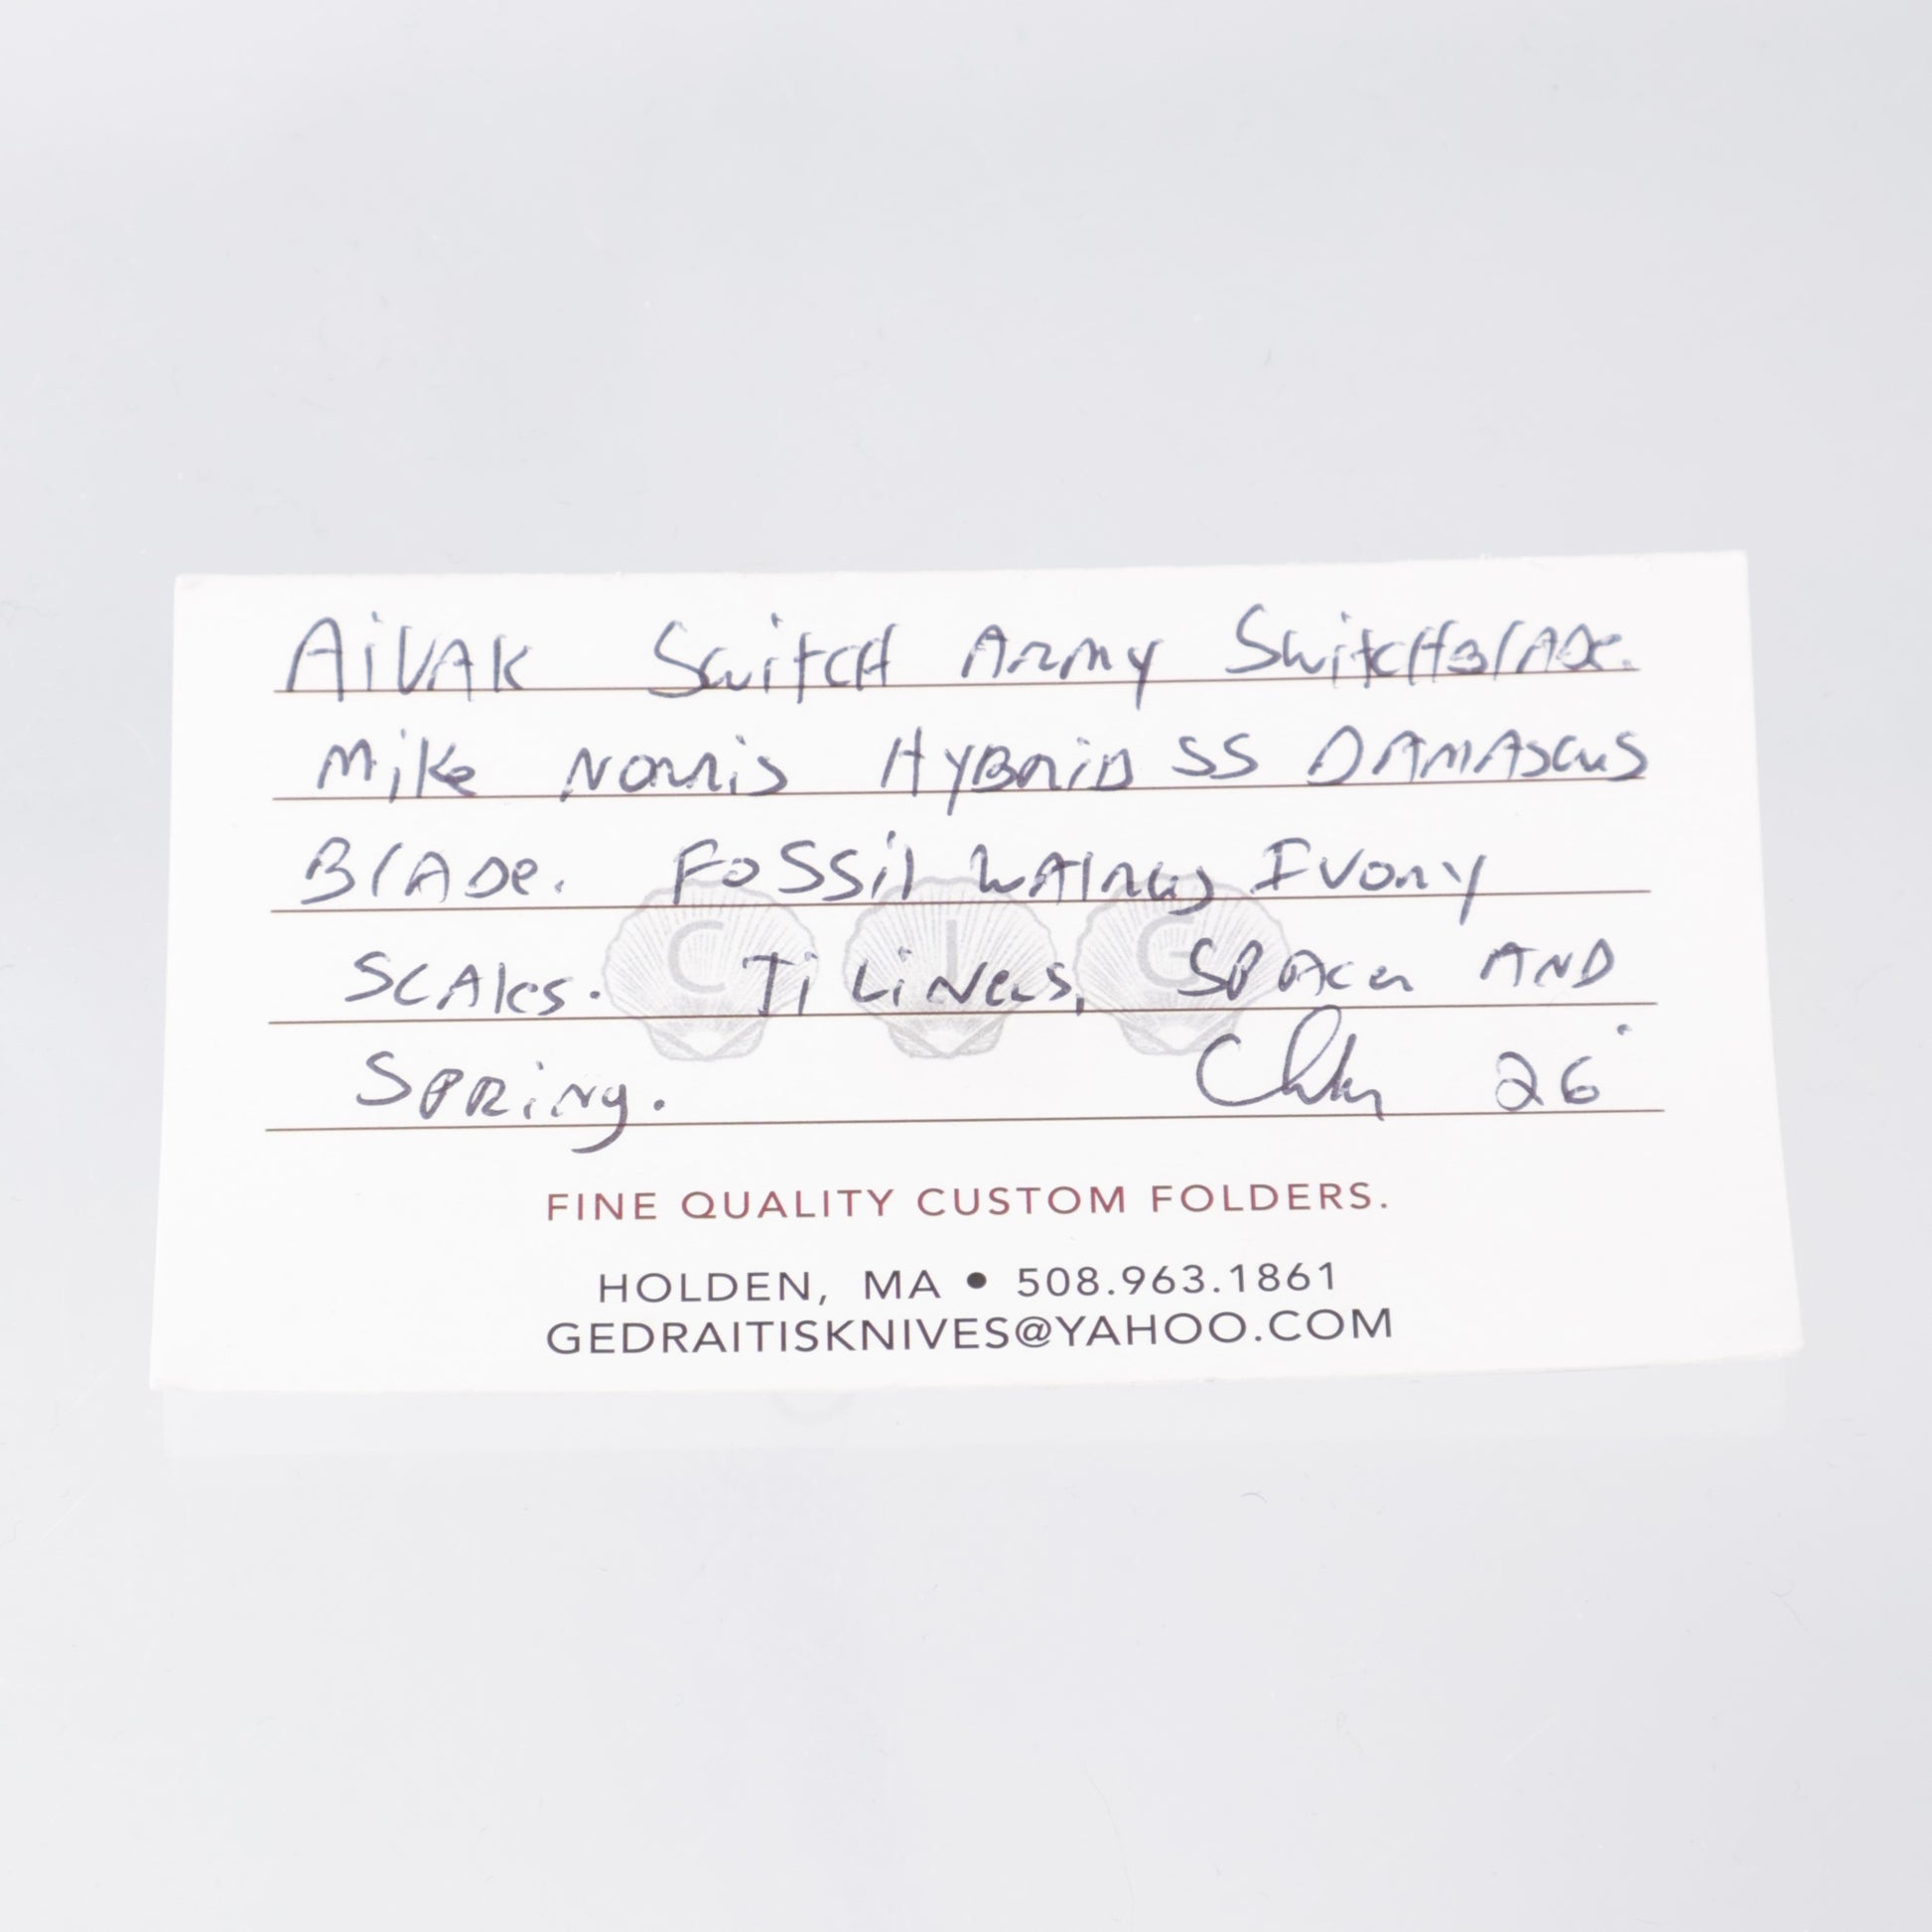 AiVAK Switch Army SwitchBlADe.
Mike Norris HYBRiD SS DAMASCUS
BlADe. FoSSil WAlrus IVORY
SCAles. Ti LiNers, SPACer AND
SPRiNg. 26
C I G
FINE QUALITY CUSTOM FOLDERS.
HOLDEN, MA • 508.963.1861
GEDRAITISKNIVES@YAHOO.COM